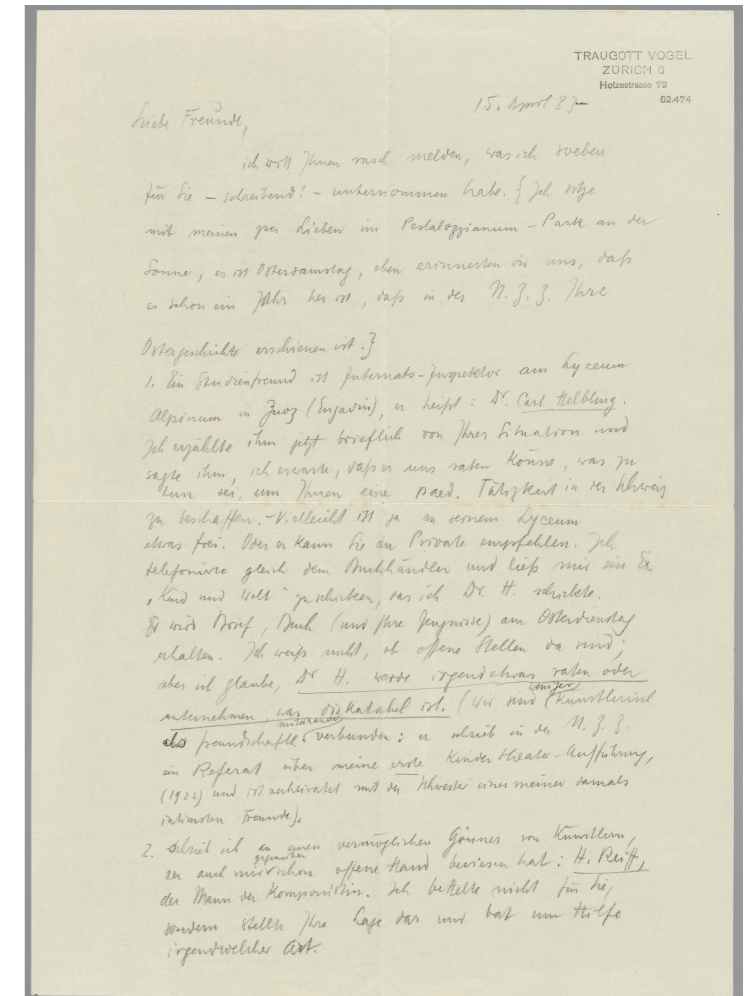 TRAUGOTT VOGEL
ZÜRICH 6
Hotzestrasse 72
62.474
15. April 33
Liebe Freunde,
ich will Ihnen rasch melden, was ich soeben
für Sie – schreibend! – unternommen habe. { Ich sitze
mit meinen zwei Lieben im Pestalozzianum-Park an der
Sonne, es ist Ostersamstag, eben erinnerten wir uns, daß
es schon ein Jahr her ist, daß in der N. Z. Z. Ihre
Ostergeschichte erschienen ist. }
1. Ein Studienfreund ist Internats-Inspektor am Lyceum
Alpinum in Zuoz (Engadin), er heißt: Dr. Carl Helbling.
Ich erzählte ihm jetzt brieflich von Ihrer Situation und
sagte ihm, ich erwarte, daß er uns raten könne, was zu
tun sei, um Ihnen eine paed. Tätigkeit in der Schweiz
zu beschaffen. – Vielleicht ist ja an seinem Lyceum
etwas frei. Oder er kann Sie an Private empfehlen. Ich
telefonierte gleich dem Buchhändler und ließ mir ein Ex
„Kind und Welt“ zuschicken, das ich Dr. H. schickte.
Er wird Brief, Buch (und Ihre Zeugnisse) am Osterdienstag
erhalten. Ich weiß nicht, ob offene Stellen da sind;
aber ich glaube, Dr H. werde irgendetwas raten oder
unternehmen, was diskutabel ist. (Wir sind weniger künstlerisch
als freundschaftl. miteinander verbunden: er schrieb in der N. Z. Z.
ein Referat über meine erste Kindertheater-Aufführung,
(1922) und ist verheiratet mit der Schwester eines meiner damals
intimsten Freunde).
2. schrieb ich an einen vermöglichen Gönner von Künstlern,
der auch mir gegenüber schon offene Hand bewiesen hat: H. Reiff,
der Mann der Komponistin. Ich bettelte nicht für Sie,
sondern stellte Ihre Lage dar und bat um Hilfe
irgendwelcher Art.